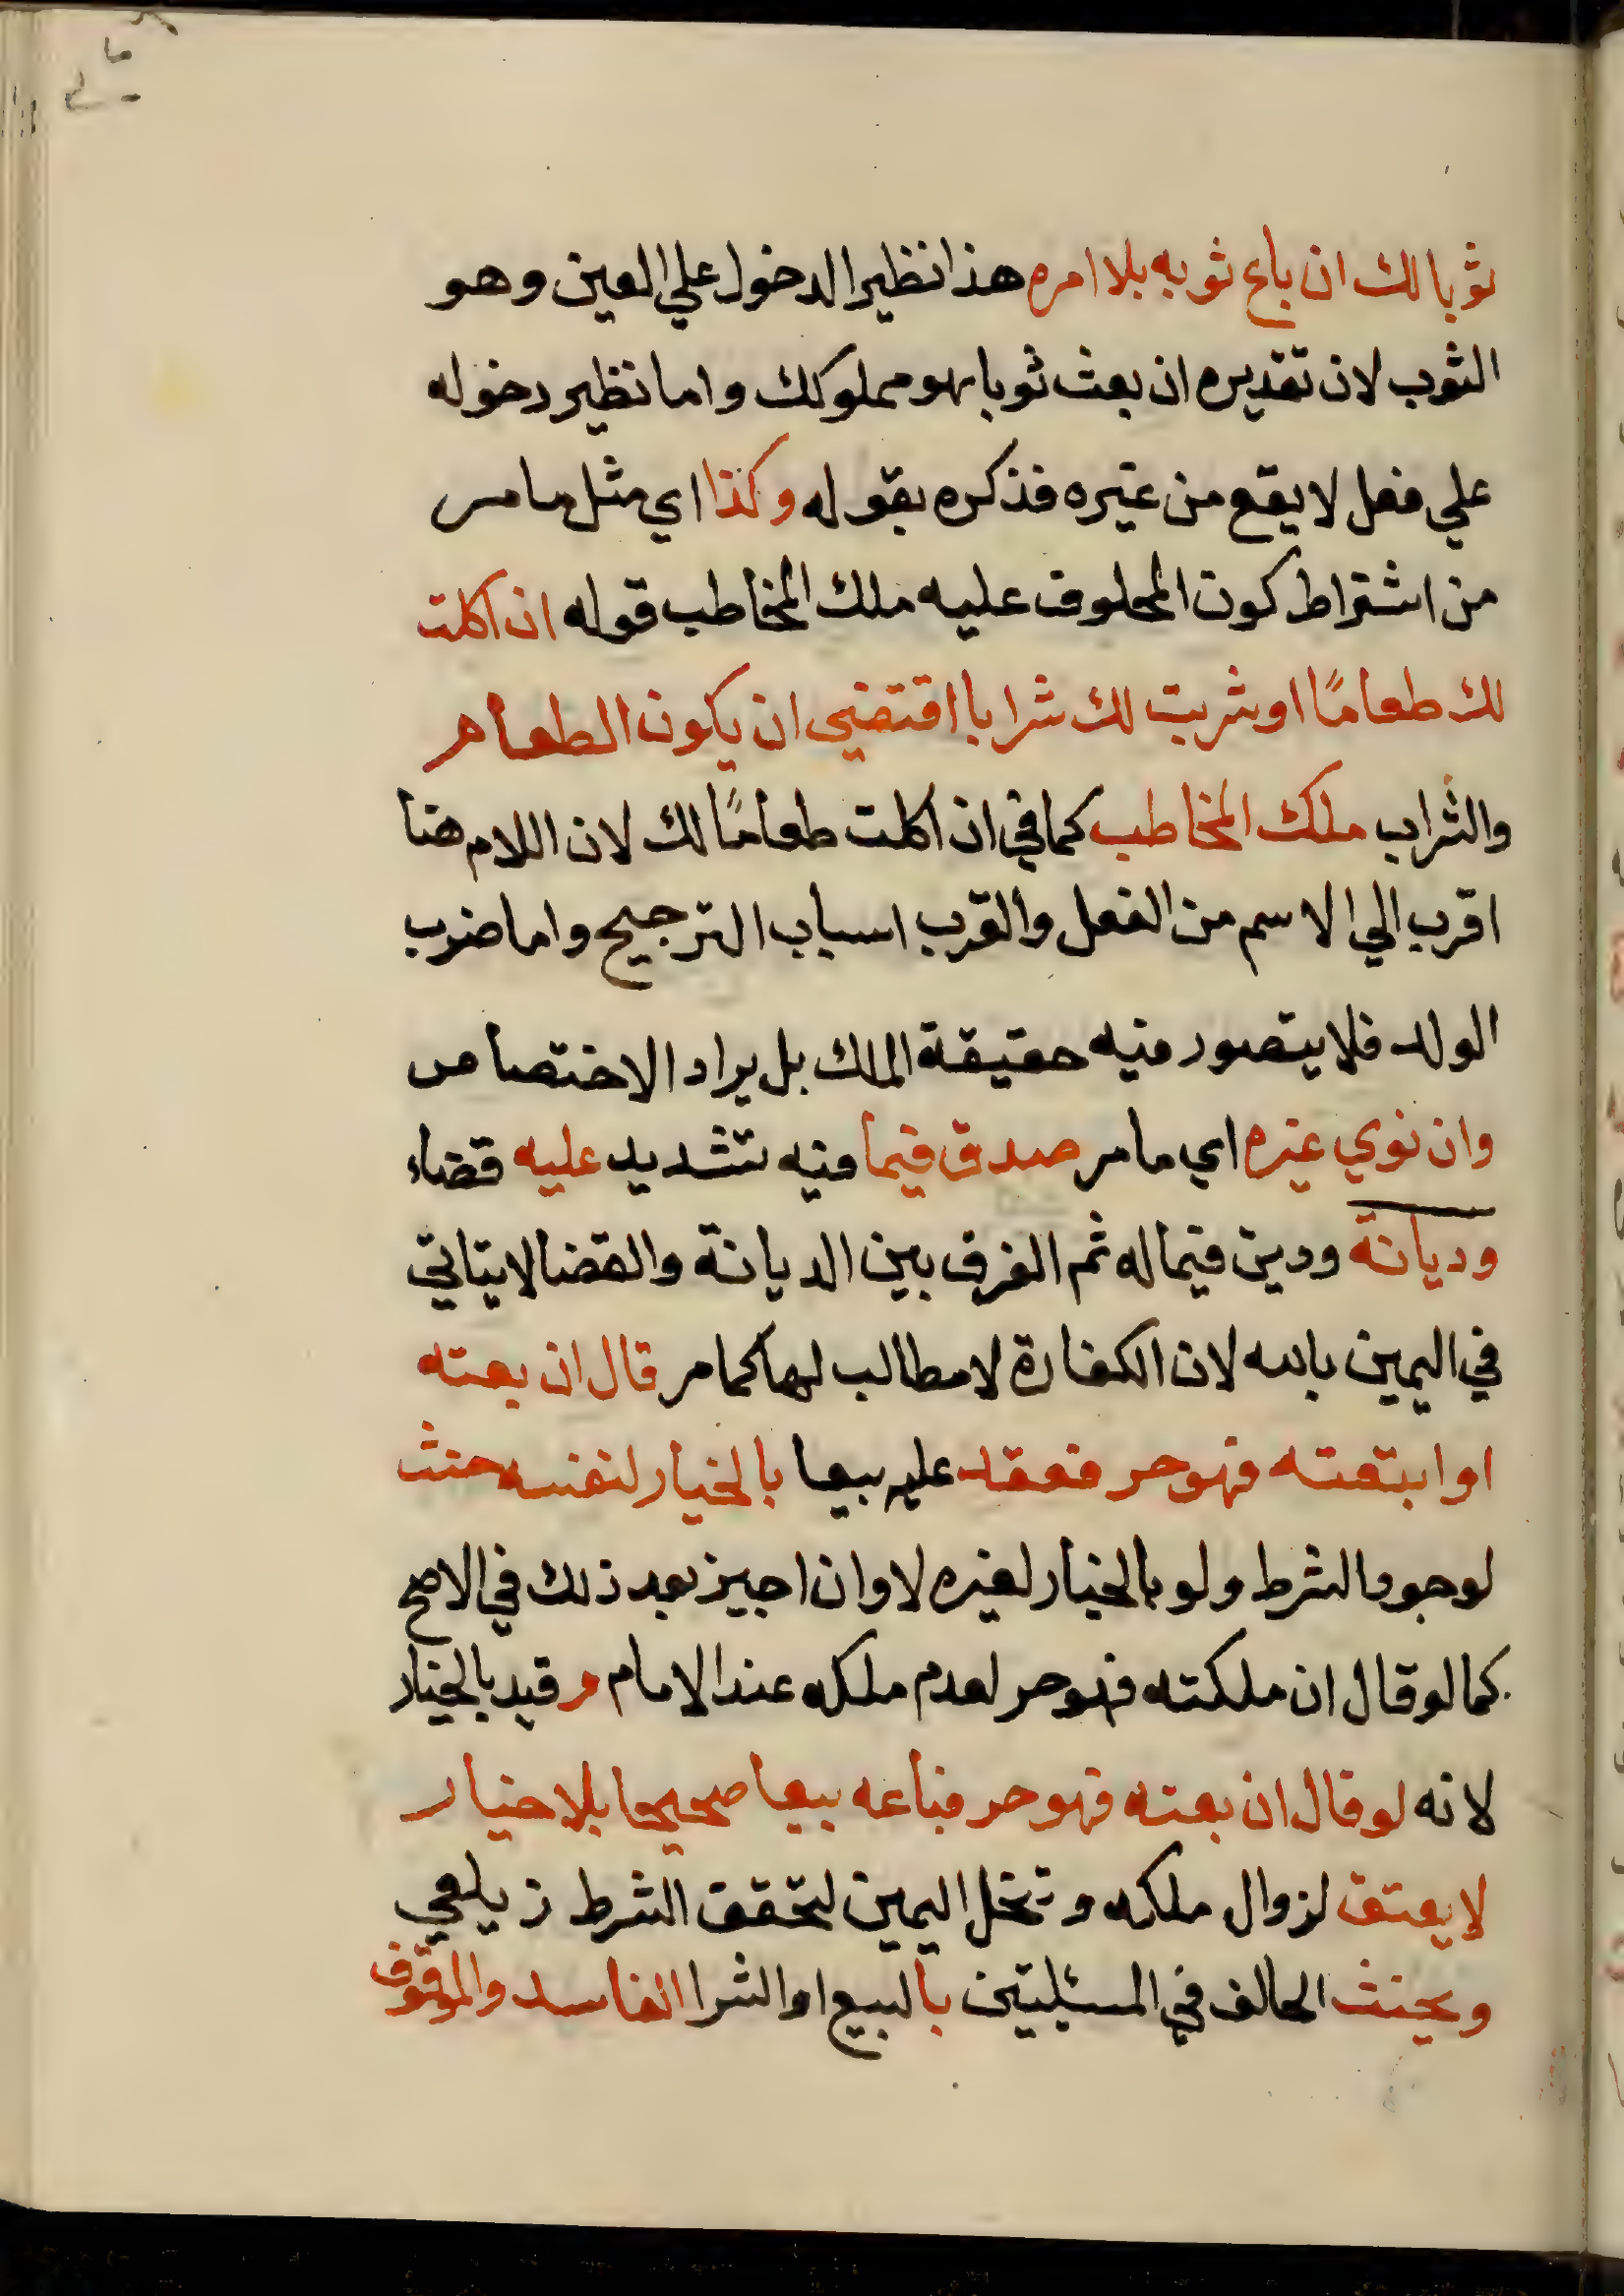 ثوبا لك ان باع ثوبه بلا امره هذا نظير الدخول علي العين وهو
الثوب لان تقديره ان بعت ثوبا هو مملوكك واما نظير دخوله
علي فعل لا يقع من غيره فذكره بقوله وكذا اي مثل ما مر
من اشتراط كون المحلوف عليه ملك المخاطب قوله ان اكلت
لك طعامًا او شربت لك شرابا اقتضي ان يكون الطعام
والشراب ملك المخاطب كما في ان اكلت طعامًا لك لان اللام هنا
اقرب الي الاسم من الفعل والقرب اسباب الترجيح واما ضرب
الولد فلا يتصور فيه حقيقة الملك بل يراد الاختصاص
وان نوي غيره اي ما مر صدق فيما فيه تشديد عليه قضاء
وديانة ودين فيما له ثم الفرق بين الديانة والقضا لا يتاتي
في اليمين بالله لان الكفارة لا مطالب لها كما مر قال ان بعته
او ابتعته فهو حر فعقد عليه بيعا بالخيار لنفسه حنث
لوجود الشرط ولو بالخيار لغيره لا وان اجيز بعد ذلك في الاصح
كما لو قال ان ملكته فهو حر لعدم ملكه عند الامام و قيد بالخيار
لانه لو قال ان بعته فهو حر فباعه بيعا صحيحا بلا خيار
لا يعتق لزوال ملكه وتنحل اليمين لتحقق الشرط زيلعي
ويحنث الحالف في المسئلتين بالبيع او الشرا الفاسد والموقوف